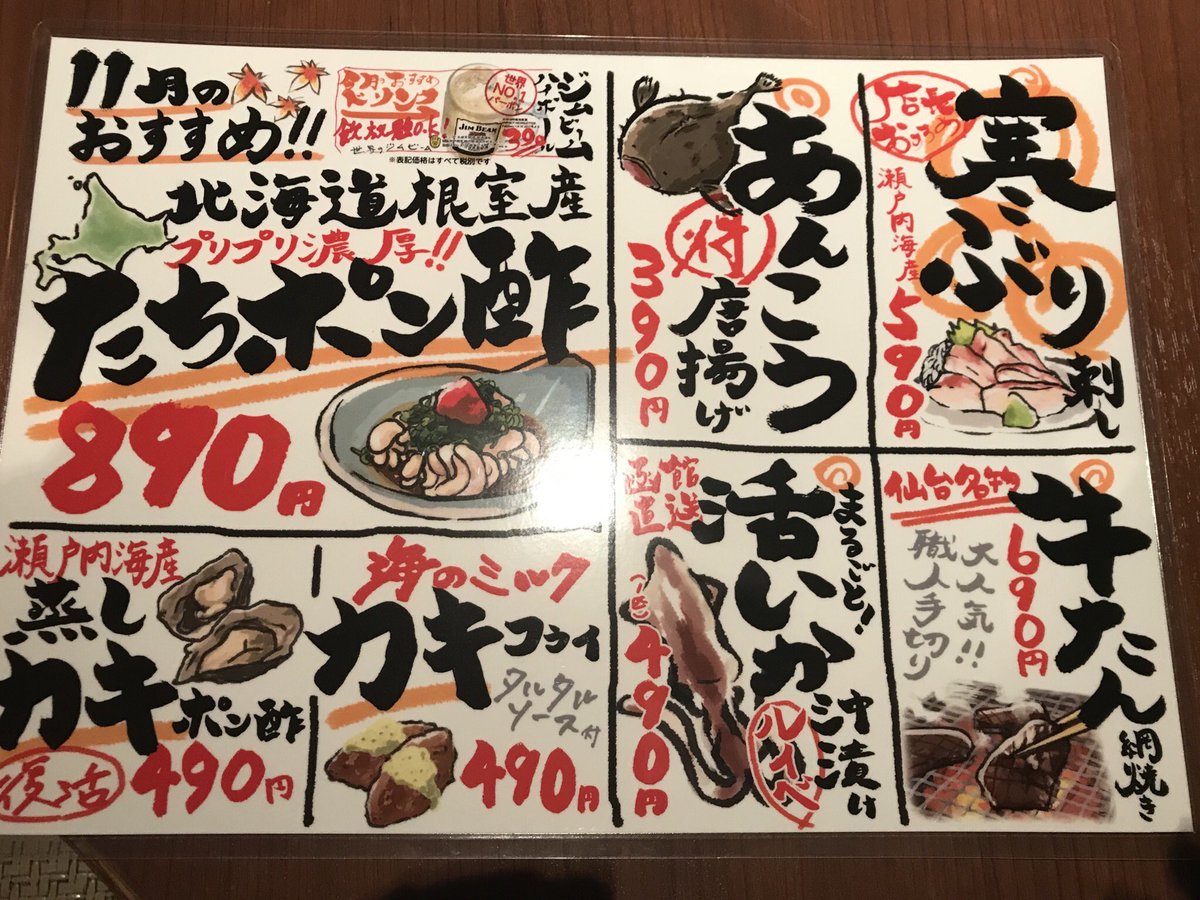 11月の
おすすめ!!
11月のおすすめ
ドリンク
飲放題OK!
世界のジムビーム
世界
NO.1
バーボン
JIM BEAM
390
ジムビーム
ハイボール
※表記価格はすべて税別です
北海道根室産
プリプリ濃厚!!
たちポン酢
890円
あんこう
唐揚げ
390円
寒ぶり刺し
瀬戸内海産
590円
瀬戸内海産
蒸し
カキポン酢
復活
490円
海のミルク
カキフライ
タルタル
ソース付
490円
函館
直送
まるごと!
活いか沖漬け
ルイベ
(1匹)490円
仙台名物
牛たん網焼き
690円
大人気!!
職人手切り